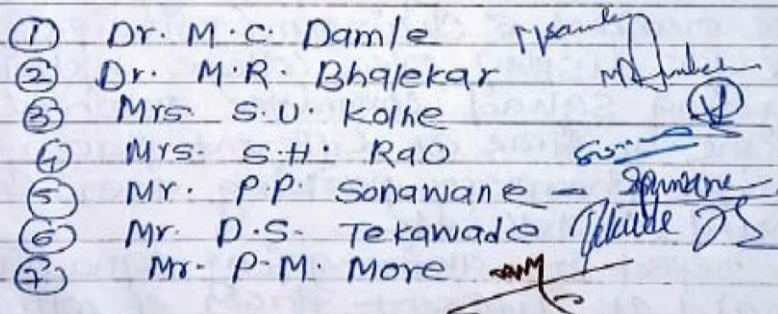 ① Dr. M.C. Damle
② Dr. M.R. Bhalekar
③ Mrs. S.U. Kolhe
④ Mrs. S.H. Rao
⑤ Mr. P.P. Sonawane –
⑥ Mr. D.S. Tekawade
⑦ Mr. P.M. More